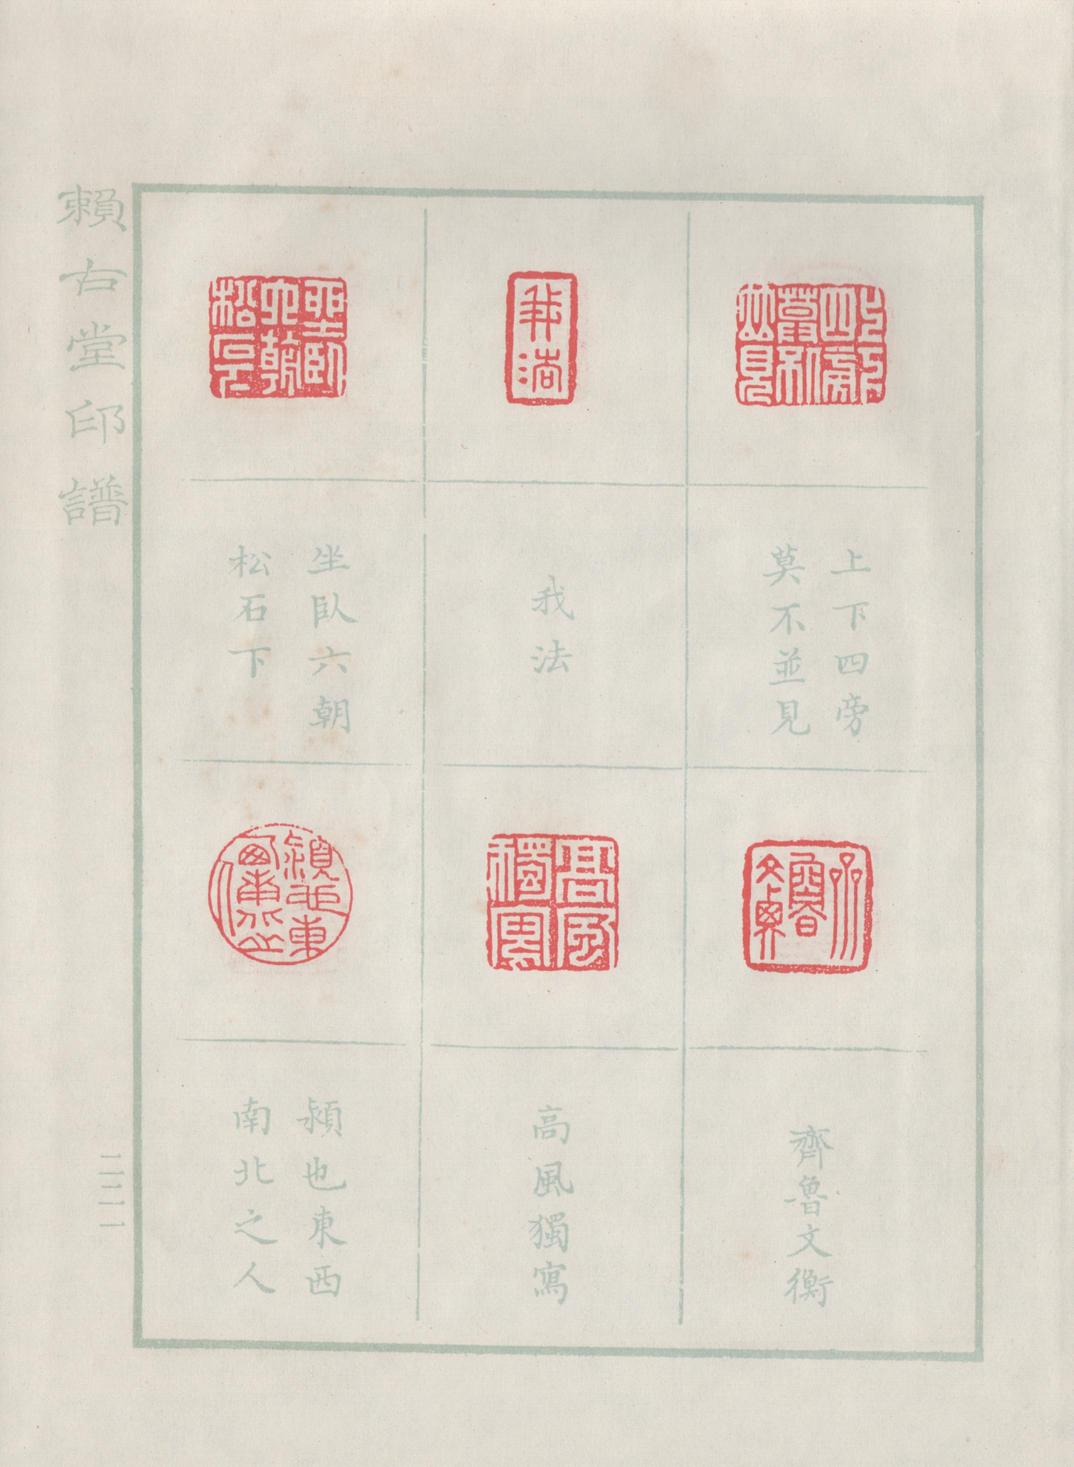 賴古堂印譜
上下四旁
莫不並見
我法
坐臥六朝
松石下
齊魯文衡
高風獨寫
潁也東西
南北之人
二二一